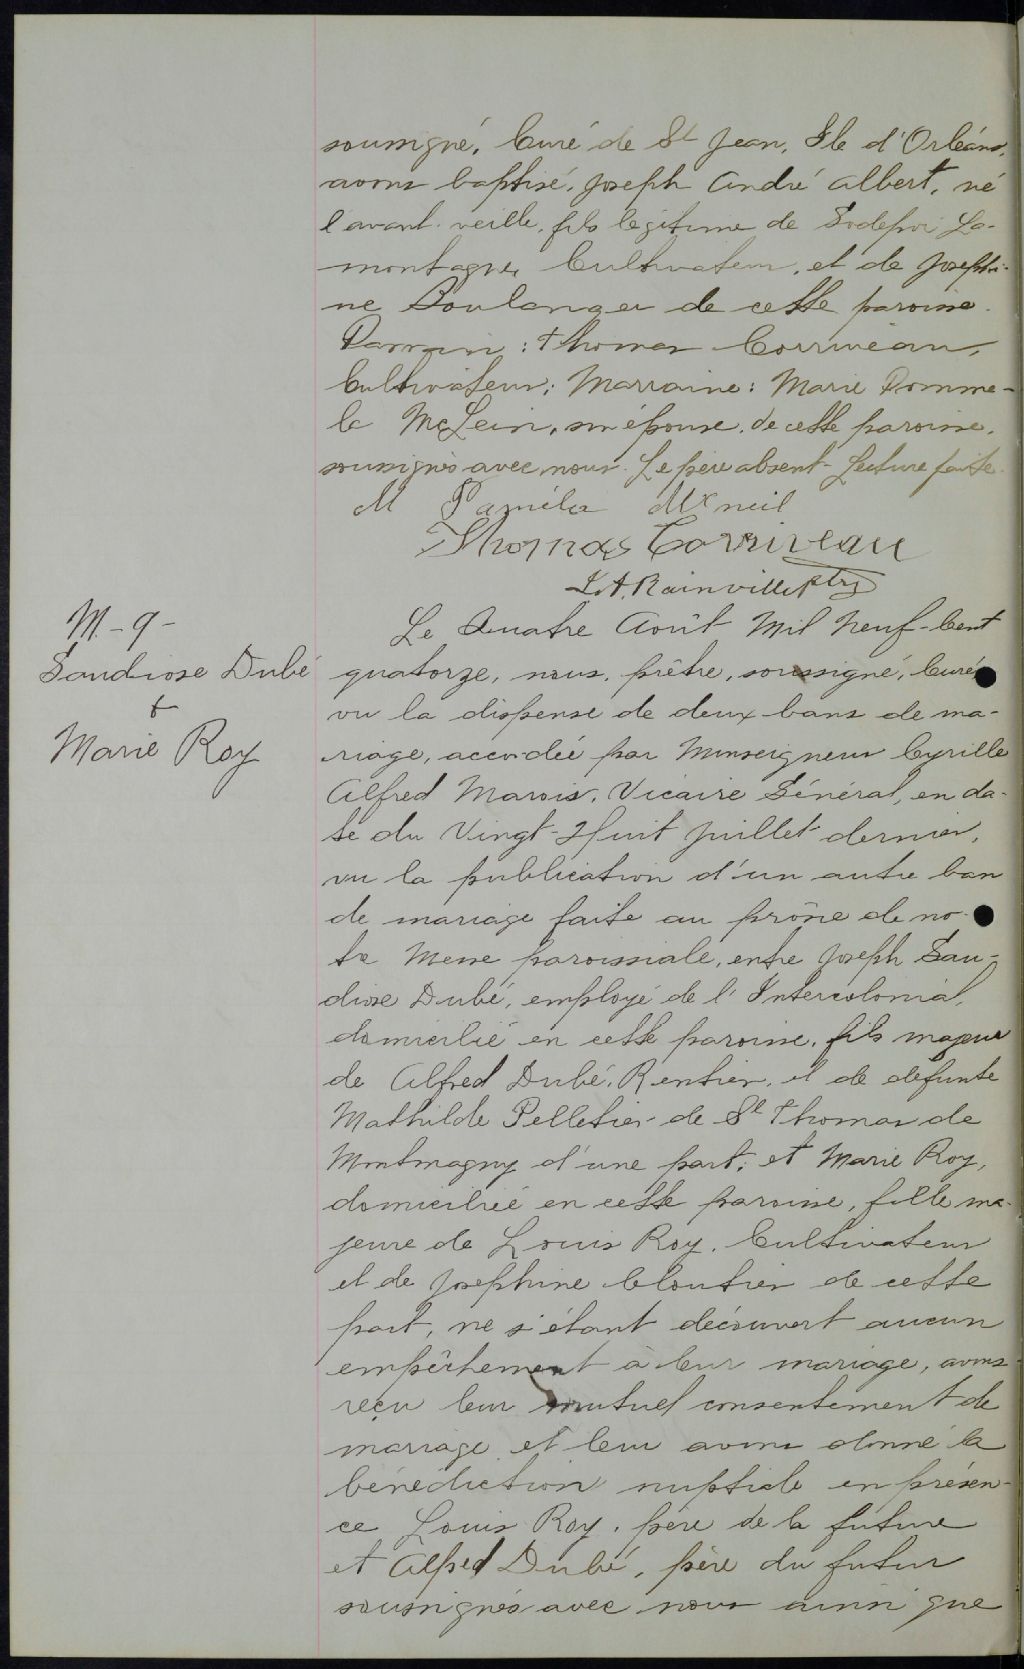 soussigné, Curé de St Jean, Ile d'Orléans,
avons baptisé, Joseph André Albert, né
l'avant-veille, fils légitime de Godefroi La-
montagne, Cultivateur, et de Joséphi-
ne Boulanger de cette paroisse.
Parrain : Thomas Corriveau,
Cultivateur; Marraine : Marie Pomme-
la McLein, son épouse, de cette paroisse,
soussignés avec nous. Le père absent. Lecture faite.
M Paméla Mcneil
Thomas Corriveau
L.A. Rainville ptre
M-9-
Gaudiose Dubé
&
Marie Roy
Le Quatre Août Mil Neuf-Cent
quatorze, nous, prêtre, soussigné, Curé,
vu la dispense de deux bans de ma-
riage, accordée par Monseigneur Cyrille
Alfred Marois, Vicaire Général, en da-
te du Vingt-Huit Juillet dernier,
vu la publication d'un autre ban
de mariage faite au prône de no-
tre Messe paroissiale, entre Joseph Gau-
diose Dubé, employé de l'Intercolonial,
domicilié en cette paroisse, fils majeur
de Alfred Dubé, Rentier, et de défunte
Mathilde Pelletier de St Thomas de
Montmagny d'une part; et Marie Roy,
domiciliée en cette paroisse, fille ma-
jeure de Louis Roy, Cultivateur
et de Joséphine Cloutier de cette
part, ne s'étant découvert aucun
empêchement à leur mariage, avons
reçu leur mutuel consentement de
mariage et leur avons donné la
bénédiction nuptiale en présen-
ce Louis Roy, père de la future
et Alfred Dubé, père du futur
soussignés avec nous ainsi que